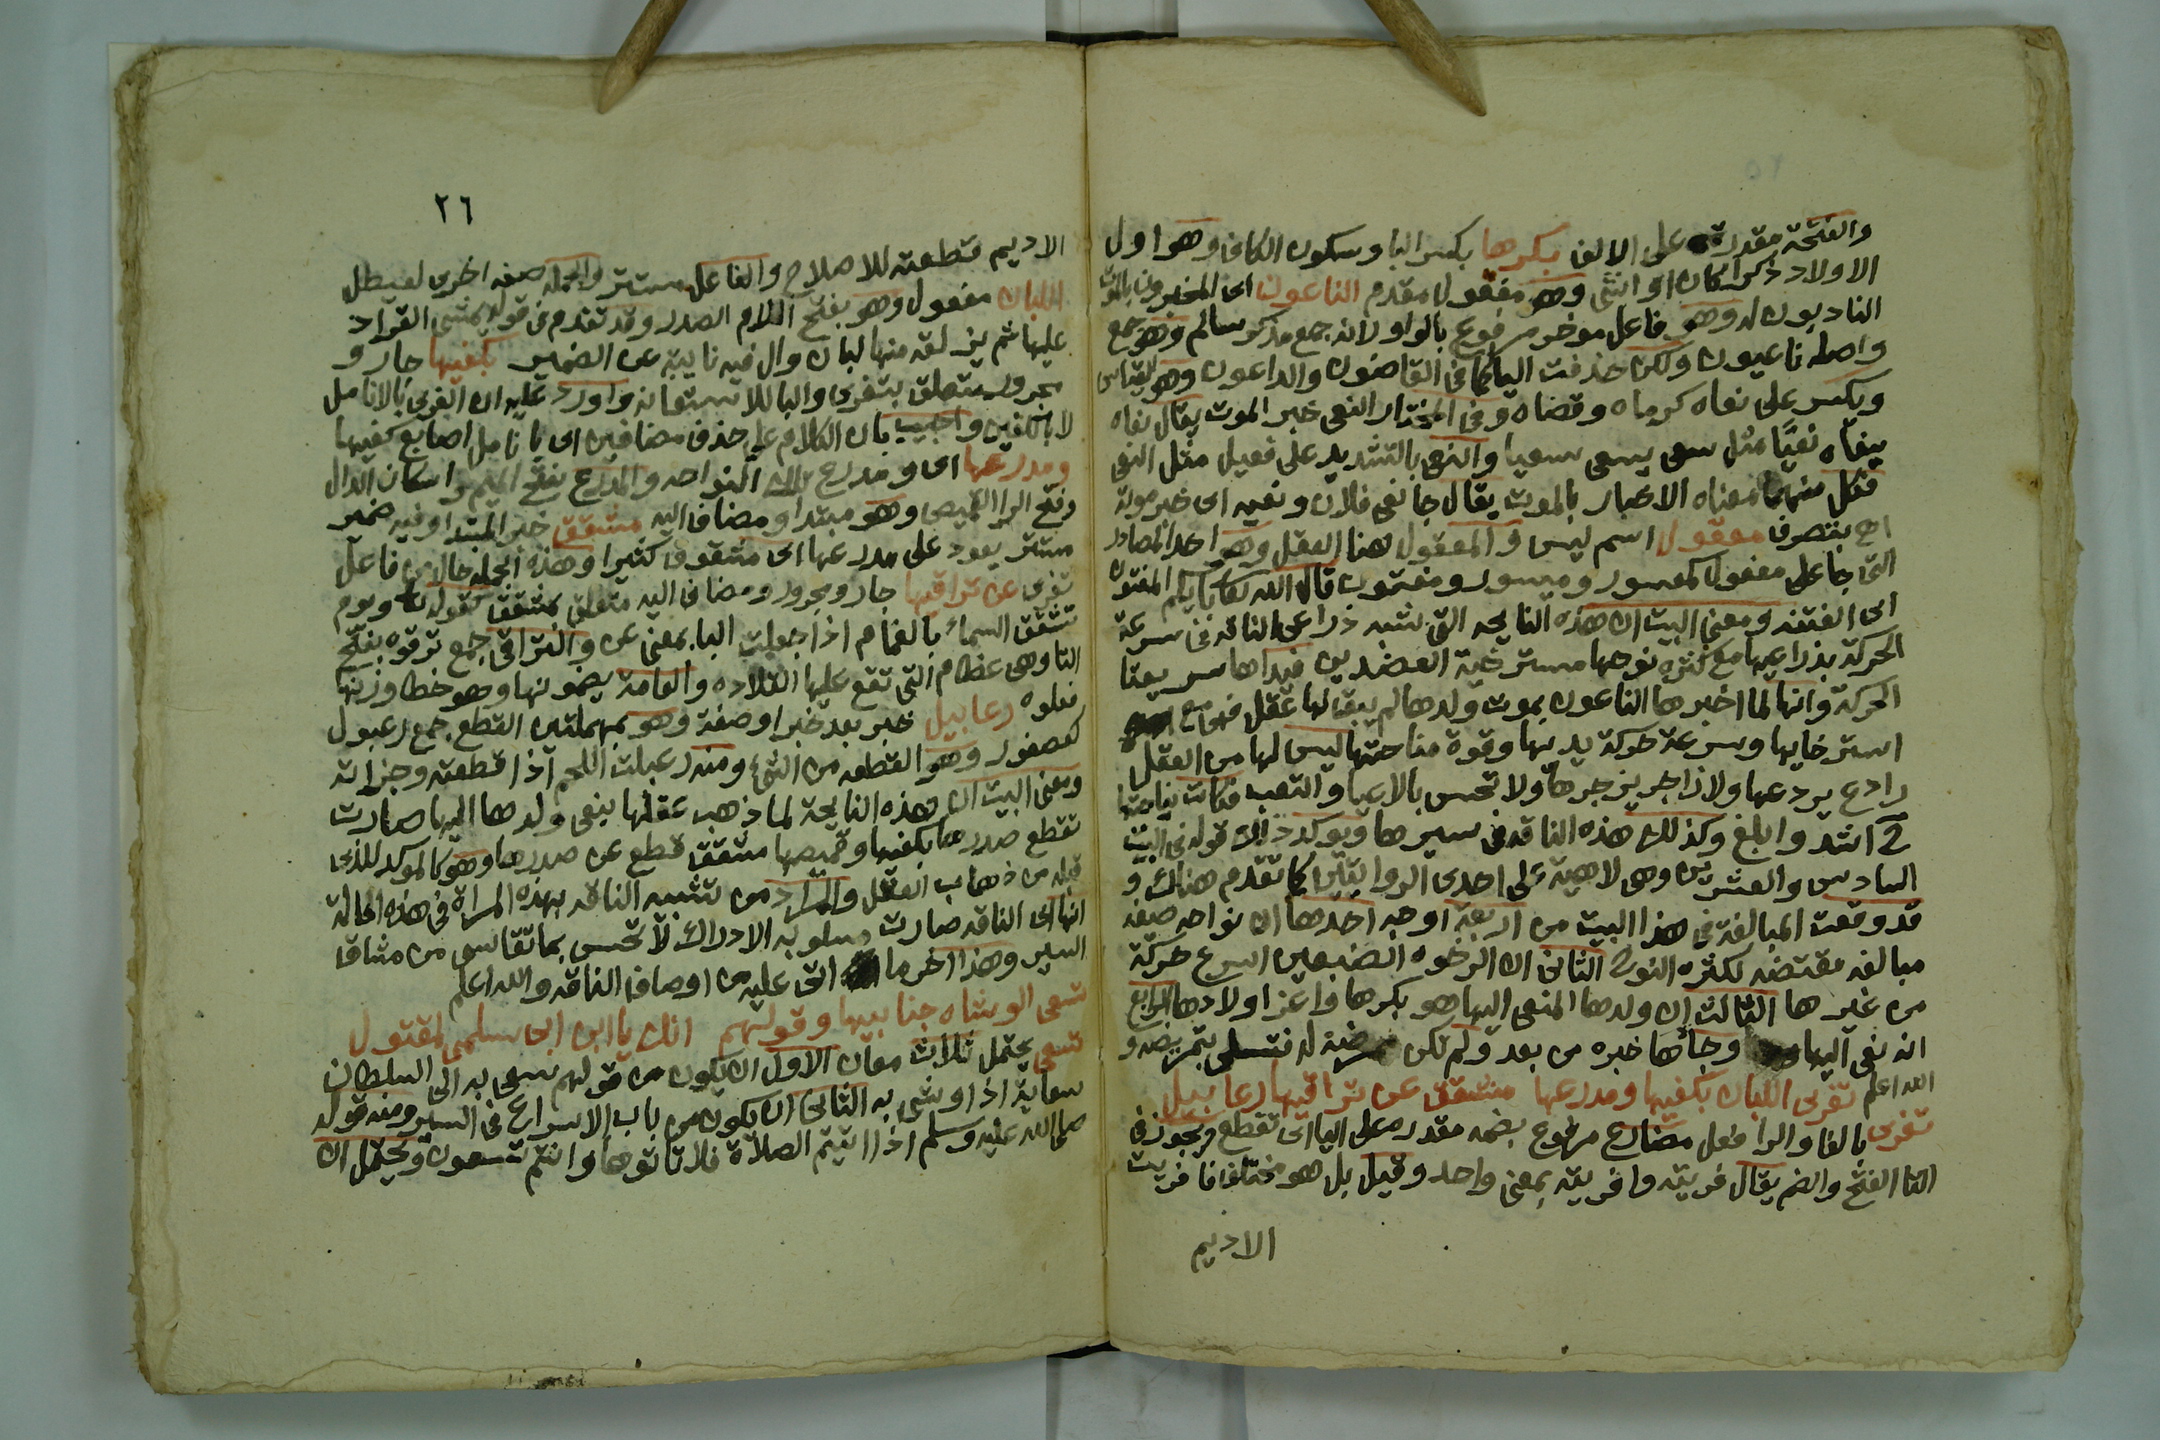 والفتحة مقدرة على الالف بكرها بكسر البا وسكون الكاف وهو اول
الاولاد ذكرا كان او انثى وهو مفعول مقدم الناعون اى المخبرون بالموت
النادبون له وهو فاعل موخر مرفوع بالواو لانه جمع مذكر سالم وهو جمع
واصله ناعيون ولكن حذفت اليا كما فى القاضون والداعون وهو
ويكسر على نعاه كرماه وقضاه وفى المختار النعى خبر الموت يقال نعاه
ينعاه نعيًا مثل سعى يسعى سعيا والنعى بالتشديد على فعيل مثل النعى
فكل منهما معناه الاخبار بالموت يقال جا نعى فلان ونعيه اى خبر موته
اهـ بتصرف معقول اسم ليس والمعقول هنا العقل وهو احد المصادر
التى جا على مفعول كمعسور وميسور ومفتون قال الله تعالى بايكم المفتون
اى الفتنه ومعنى البيت ان هذه النايحه التى تشبه ذراعى الناقه فى سرعة
الحركة بذراعيها مع كثرة نوحها مسترخية العضدين فيداها سريعتا
الحركة وانها لما اخبرها الناعون بموت ولدها لم يبق لها عقل فهى مع
استرخايها وسرعة حركة يديها وقوة مناحتها ليس لها من العقل
رادع يردعها ولا زاجر يزجرها ولا تحس بالاعيا والتعب فكانت نياحتها
ح اشد وابلغ وكذلك هذه الناقه فى سيرها ويوكد ذلك قوله فى البيت
السادس والعشرين وهى لاهية على احدى الروايتين كما تقدم هناك و
قد وقعت المبالغة فى هذا البيت من اربعة اوجه احدها ان نواحه صيغة
مبالغه مقتضه لكثره النوح الثانى ان الرخوه الضبعين اسرع حركة
من غيرها الثالث ان ولدها المنعى اليها هو بكرها واعز اولادها الرابع
انه نعى اليها وجأها خبره من بعد ولم تكن مرضة له فتسلى بتمريضه و
الله اعلم تفرى اللبان بكفيها ومدرعها مشقق عن تراقيها رعابيل
تفرى بالفا والرا فعل مضارع مرفوع بضمه مقدرة على اليا اى تقطع ويجوز فى
التا الفتح والضم يقال فريته وافريته بمعنى واحد وقيل بل هو مختلف فافريت
الاديم
٢٦
الاديم قطعته للاصلاح والفاعل مستتر والجمله صفه اخرى لعيطل
اللبان مفعول وهو بفتح اللام الصدر وقد تقدم فى قوله يمشى القراد
عليها ثم يزلقه منها لبان وال فيه نايبة عن الضمير بكفيها جار و
مجرور متعلق بتفرى والبا للاستعانه واورد عليه ان الفرى بالانامل
لا بالكفين واجيب بان الكلام على حذف مضافين اى بانامل اصابع كفيها
ومدرعها اى ومدرع تلك النواحه والمدرع بفتح الميم واسكان الدال
وفتح الرا القميص وهو مبتدا ومضاف اليه مشقق خبر المبتدا وفيه ضمير
مستتر يعود على مدرعها اى مشقوق كثيرا وهذه الجمله حال من فاعل
تفرى عن تراقيها جار ومجرور ومضاف اليه متعلق بمشقق كقوله تعالى ويوم
تشقق السماء بالغمام اذا جعلت البا بمعنى عن والتراقى جمع ترقوه بفتح
التا وهى عظام التى تقع عليها القلاده والعامة يضمونها وهو خطا وزنها
فعلوه رعابيل خبر بعد خبر او صفة وهو بمهملتين القطع جمع رعبول
كعصفور وهو القطعه من الشئ ومنه رعبلت اللحم اذا قطعته وجزاته
ومعنى البيت ان هذه النايحة لما ذهب عقلها بنعى ولدها اليها صارت
تقطع صدرها بكفيها وقميصها مشقق قطع عن صدرها وهو كالموكد للذى
قبله من ذهاب العقل والمراد من تشبيه الناقه بهذه المراة فى هذه الحالة
انها اى الناقه صارت مسلوبه الادراك لا تحس بما تقاسى من مشاق
السير وهذا اخر ما اتى عليه من اوصاف الناقه والله اعلم
تسعى الوشاه جنابيها وقولهم انك ياابن ابى سلمى لمقتول
تسعى يحتمل ثلاث معان الاول ان يكون من قولهم سعى به الى السلطان
سعاية اذا وشى به الثانى ان يكون من باب الاسراع فى السير ومنه قوله
صلى الله عليه وسلم اذا اتيتم الصلاة فلا تاتوها وانتم تسعون ويحتمل ان